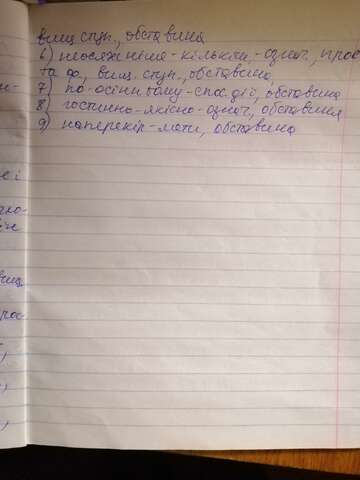 вищ. ступ., обставина
6) неосяжніше - кількісно - означ., прос
та ф., вищ. ступ., обставина
7) по-осінньому - спос. дії, обставина
8) гостинно - якісно - означ, обставина
9) наперекір - мети, обставина